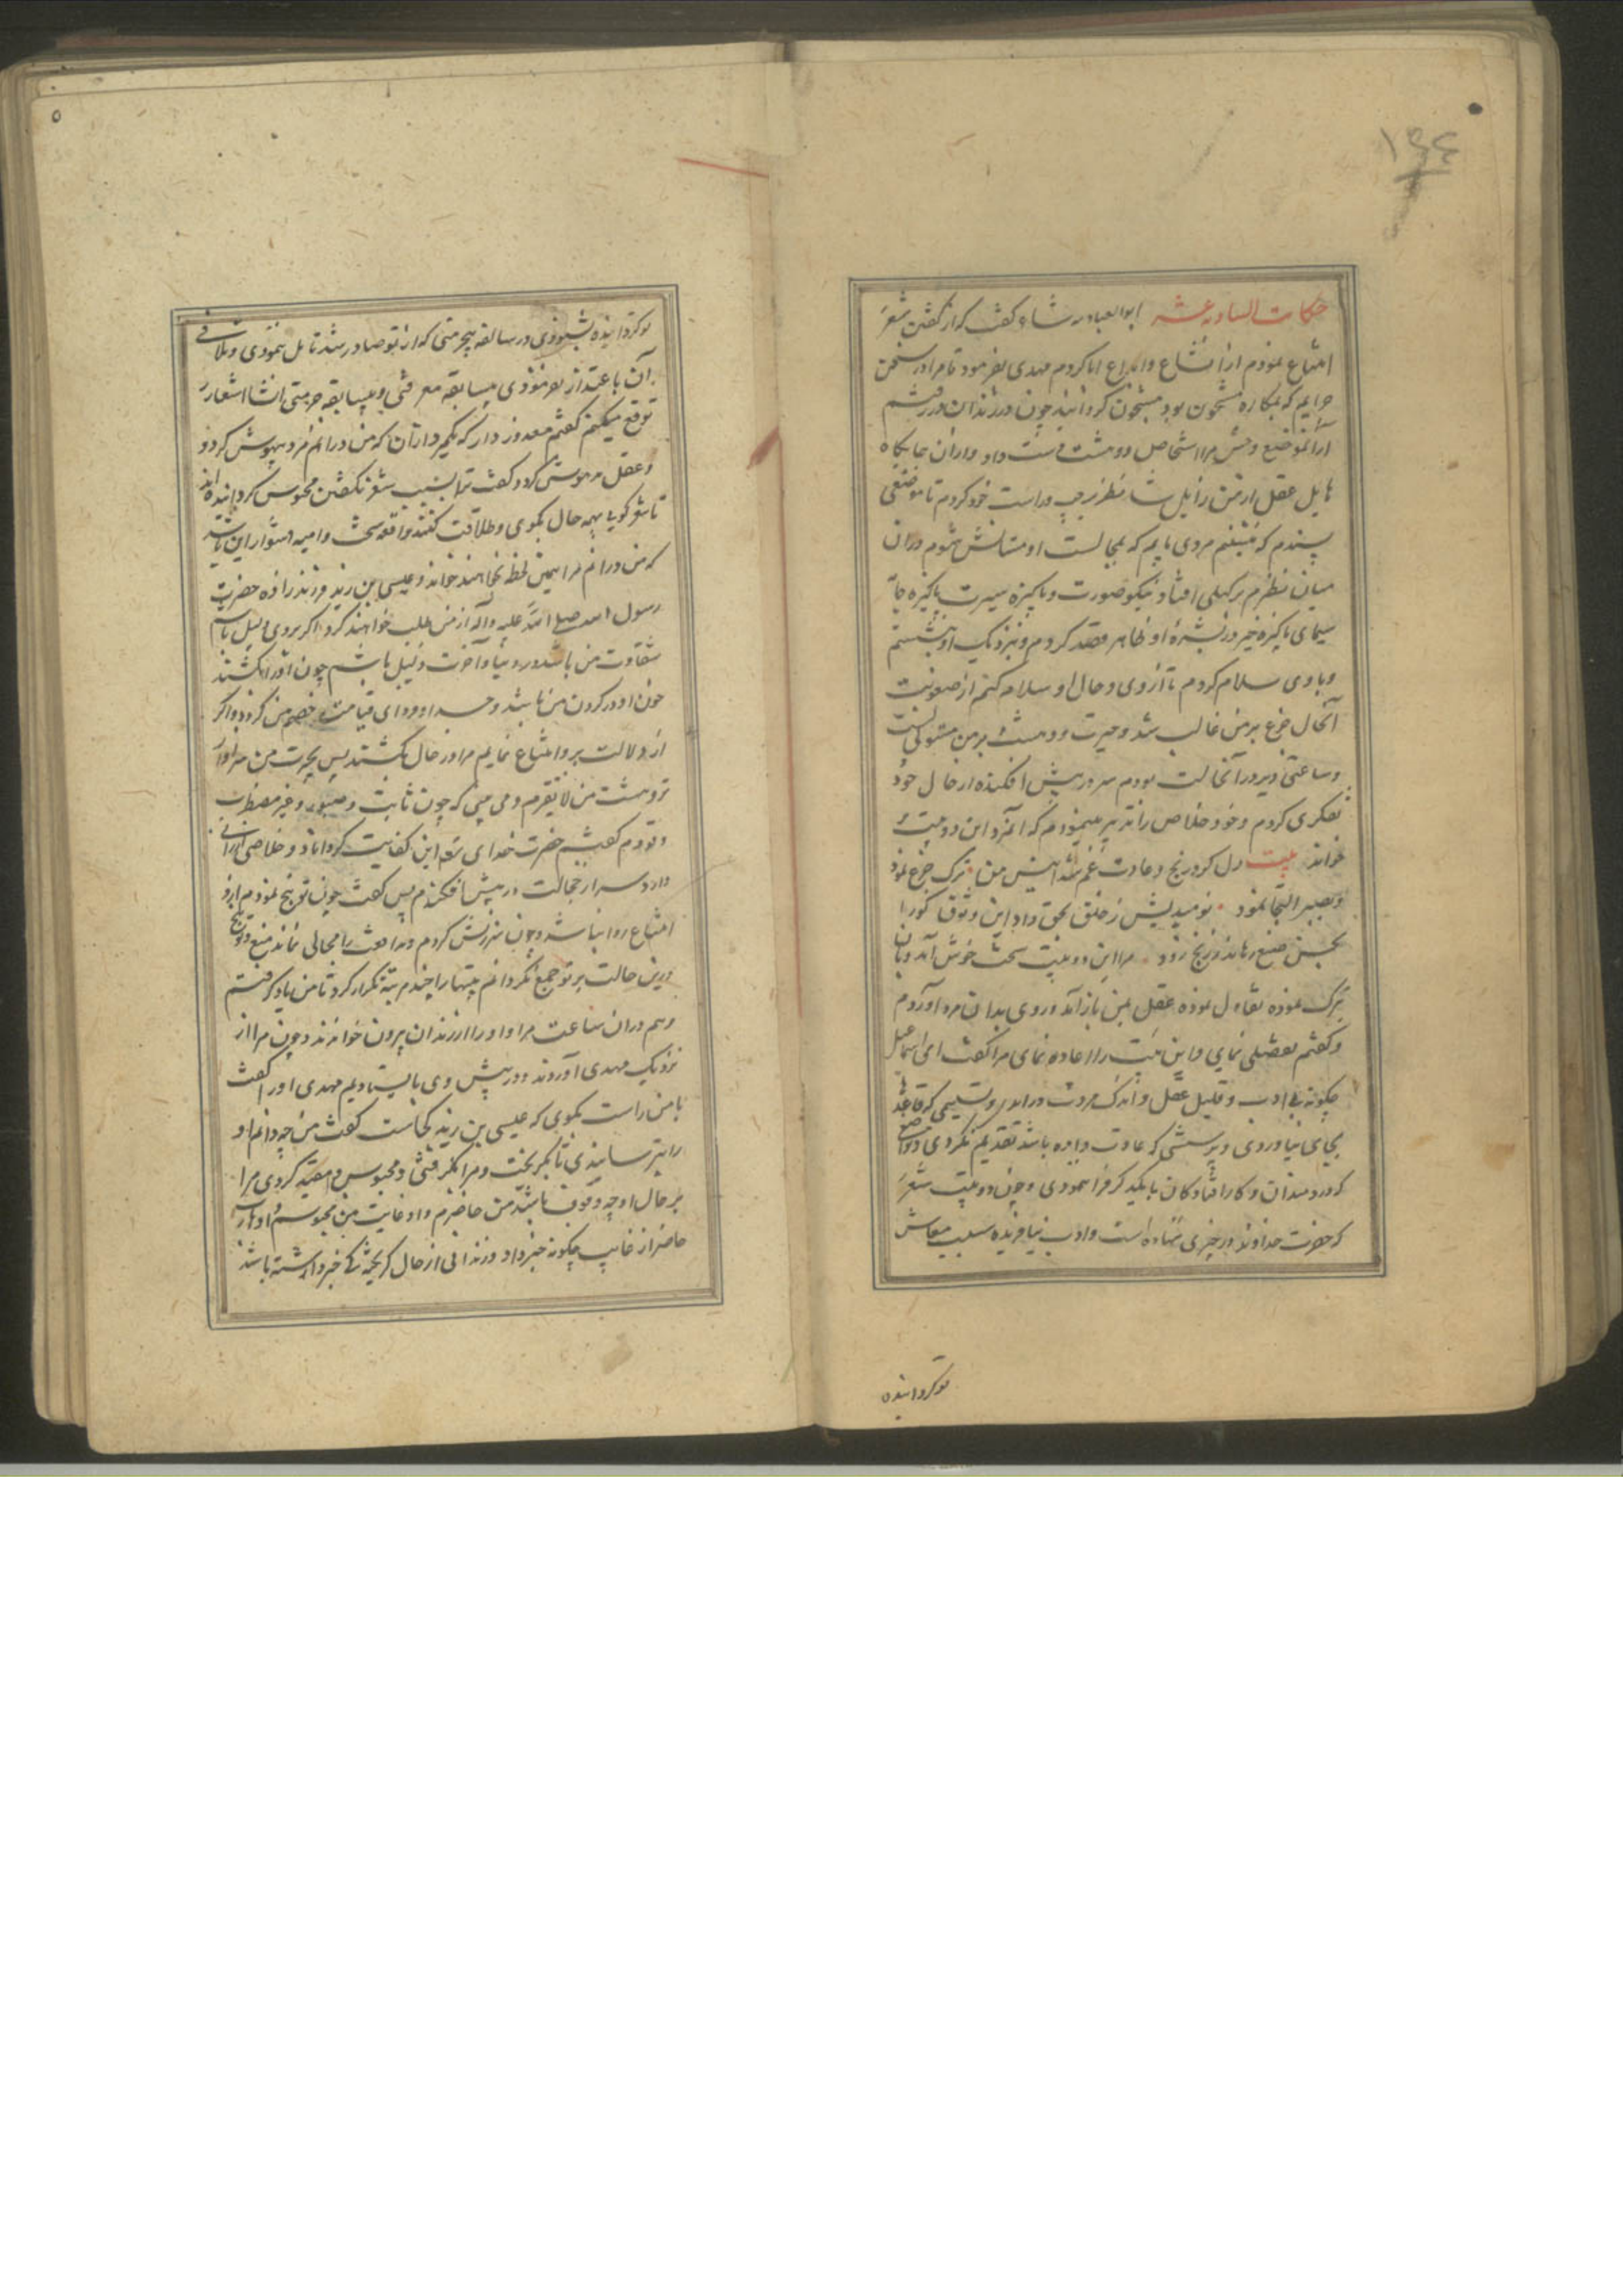 حکایت السادسه عشر ابوالعباده شاعر کفت که از کفتن شعر
امتناع نمودم از انشاع وابداع ابا کردم مهدی بفرمود تا مرا در سجن
جرایم که بمکاره مشحون بود مسجون کردانیدند چون در زندان در رفتم
از آنموضع وحش مرا استحاص ودهشت دست داد وازان جایکاه
هایل عقل از من زایل شد نظر بر چپ وراست خود کردم تا موضعی
پسندم که بنشینم مردی یابم که بمجالست او مستانس شوم دران
میان نظرم بر کهلی افتاد نیکو صورت وپاکیزه سیرت پاکیزه جامه
سیمای پاکیزه خیر در بشره او ظاهر قصد کردم وبنزدیک او بنشستم
وبا وی سلام کردم تا از وی وحال او سلام کنم از صعوبت
آنحال جزع بر من غالب شد وحیرت ودهشت بر من مستولی کشت
وساعتی دیر در آنحالت بودم سر در پیش افکنده از حال خود
تفکری کردم وخود خلاص را تدبیر مینمودم که آنمرد این دو بیت
خواند بیت دل کرد رنج وعادت غم شد انیس من ترک جزع نمود
وبصبر التجا نمود نومیدیش ز خلق بحق داد این وثوق کورا
بحسن صنع رهاند ز رنج زود مرا این دو بیت سخت خوش آمد وبدان
تبرک نموده تفاول نموده عقل بمن باز آمد وروی بدان مرد آوردم
وکفتم تفضلی نمای واین بیت را اعاده نمای مرا کفت ای اسماعیل
چکونه بی ادب وقلیل عقل واندک مروت در آمدی وتسلیمی که قاعده
بجای نیاوردی وپرسشی که عادت وابره باشد تقدیم نکردی وتواضع
که دردمندان وکار افتادکان با یکدیکر کنند فراننمودی وچون دو بیت شعر
که حضرت خداوند در چیزی ننهاده است وادب نیافریده سبب معاش
توکردانیده
توکردانیده بشنودی در سالفه بیحرمتی که از تو صادر شد تامل ننمودی وتلافی
آن با عتذار نفرمودی بیسابقه معرفتی وبیسابقه حرمتی انشا اشعار
توقع میکنی کفتم معذور دار که بکمتر ازان که من در آنم مرد بیهوش کردد
وعقل مدهوش کردد کفت ترا بسبب شعر نکفتن محبوس کردانیده اند
تا شعر کویی بهمه حال بکوی وطلاقت کنند واقعه سخت وامید دشوار این باشد
که من در آنم مرا همین لحظه بخواهند خواند وعیسی بن زید فرزند زاده حضرت
رسول الله صلی الله علیه وآله از من طلب خواهند کرد اکر بر وی دلیل باشم
شقاوت من باشد در دنیا وآخرت ذلیل باشم چون او را بکشند
خون او در کردن من باشد وجد او فردای قیامت خصم من کردد واکر
از دلالت بر وامتناع نمایم مرا در حال بکشند پس بحیرت من سزاوار
ترو دهشت من لا یقترم ومی بینی که چون ثابت وصبور وغیر مضطرب
وقورم کفتم حضرت خدای تع این کفایت کرداناد وخلاصی ارزانی
دارد سر از خجالت در پیش افکندم پس کفت چون توبیخ نمودم از تو
امتناع روا نباشد وچون سرزنش کردم وندامت را مجالی نماند منع وتوبیخ
درین حالت بر تو جمع نکردانم بیتها را چند مرتبه تکرار کرد تا من یاد کرفتم
وهم دران ساعت مرا واو را از زندان بیرون خواندند وچون مرا از
نزدیک مهدی آوردند ودر پیش وی بایستادیم مهدی او را کفت
با من راست بکوی که عیسی بن زید بکجاست کفت من چه دانم او
را بترسانیدی تا بکریخت ومرا بکرفتی ومحبوس ومقید کردی مرا
بر حال او چه وقوف باشد من حاضرم واو غایب من محبوسم او هارب
حاضر از غایب چکونه خبر داد وزندانی از حال کریخته کی خبر داشته باشد